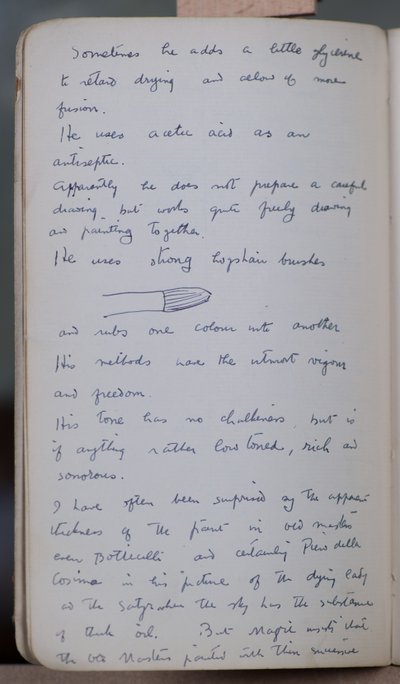 Sometimes he adds a little glycerine
to retard drying and allow of more
fusion.
He uses acetic acid as an
antiseptic.
Apparently he does not prepare a careful
drawing but works quite freely drawing
and painting together.
He uses strong hogshair brushes
and rubs one colour into another
His methods have the utmost vigour
and freedom.
His tone has no chalkiness, but is
if anything rather low toned, rich and
sonorous.
I have often been surprised by the apparent
thickness of the paint in old masters
even Botticelli and certainly Piero della
Cosima in his picture of the dying lady
and the Satyr when the sky has the substance
of thick oil. But Magie insists that
the old Masters painted with thin successive